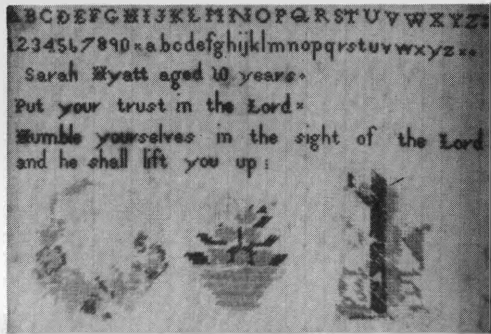 ABCDEFGHIJKLMNOPQRSTUVWXYZ
1234567890 abcdefghijklmnopqrstuvwxyz
Sarah Hyatt aged 10 years
Put your trust in the Lord
Humble yourselves in the sight of the Lord
and he shall lift you up: